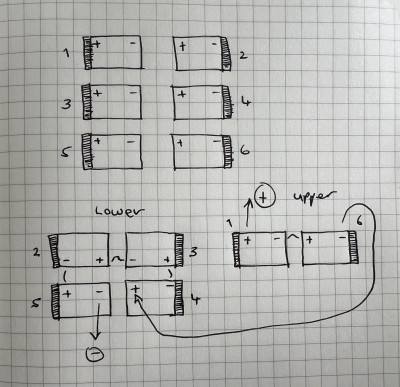 1 + - + - 2
3 + - + - 4
5 + - + - 6
Lower
+ upper
2 - + ~ - + 3
1 + - ~ + - 6
5 + - + - 4
-